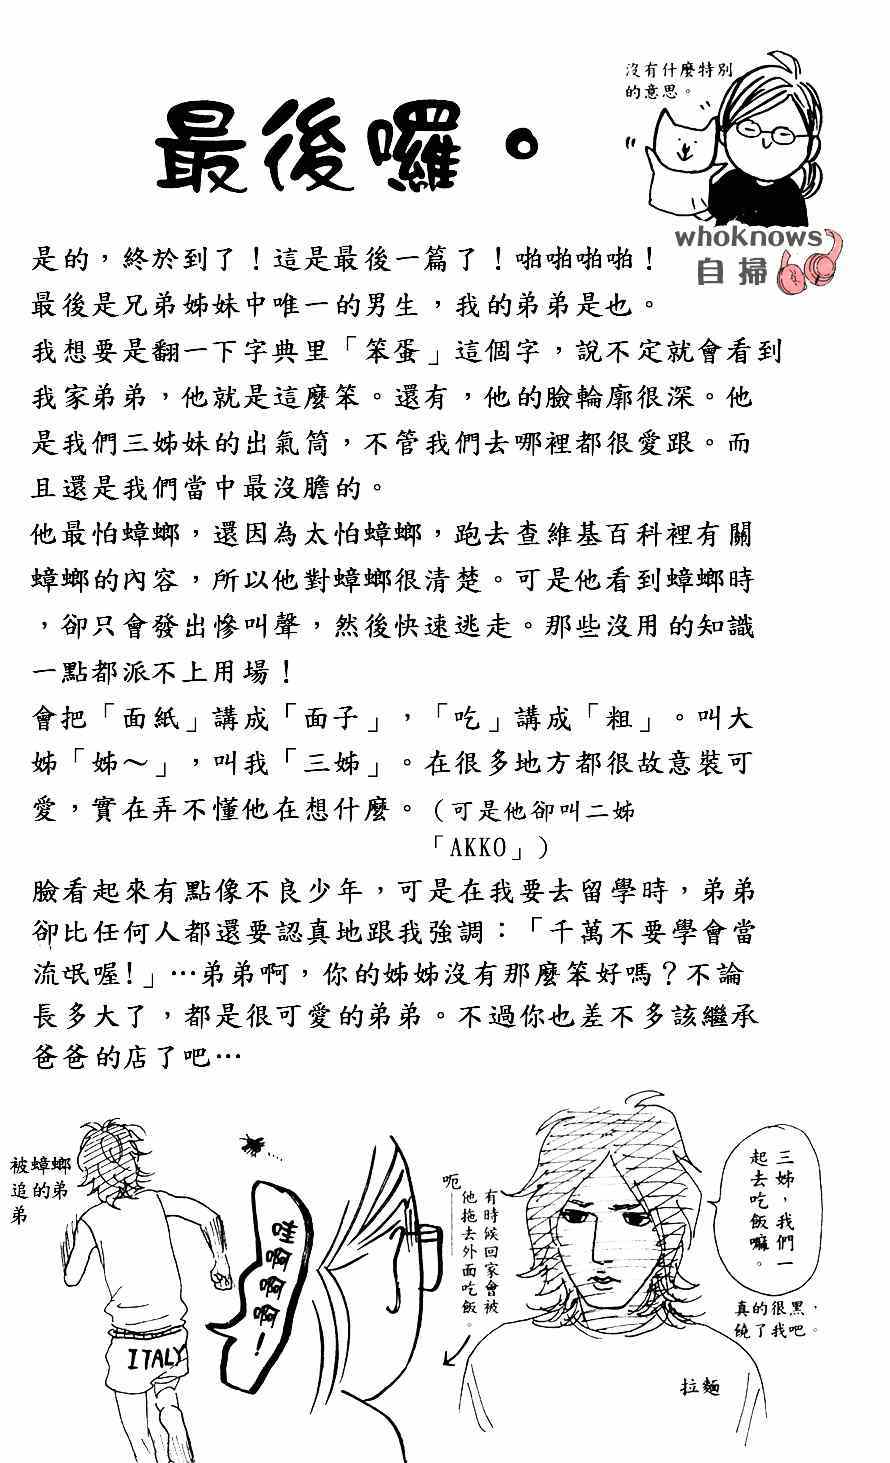 最後囉。
沒有什麼特別
的意思。
whoknows
自掃
是的，終於到了！這是最後一篇了！啪啪啪啪！
最後是兄弟姊妹中唯一的男生，我的弟弟是也。
我想要是翻一下字典里「笨蛋」這個字，說不定就會看到
我家弟弟，他就是這麼笨。還有，他的臉輪廓很深。他
是我們三姊妹的出氣筒，不管我們去哪裡都很愛跟。而
且還是我們當中最沒膽的。
他最怕蟑螂，還因為太怕蟑螂，跑去查維基百科裡有關
蟑螂的內容，所以他對蟑螂很清楚。可是他看到蟑螂時
，卻只會發出慘叫聲，然後快速逃走。那些沒用的知識
一點都派不上用場！
會把「面紙」講成「面子」，「吃」講成「粗」。叫大
姊「姊～」，叫我「三姊」。在很多地方都很故意裝可
愛，實在弄不懂他在想什麼。（可是他卻叫二姊
「AKKO」）
臉看起來有點像不良少年，可是在我要去留學時，弟弟
卻比任何人都還要認真地跟我強調：「千萬不要學會當
流氓喔！」…弟弟啊，你的姊姊沒有那麼笨好嗎？不論
長多大了，都是很可愛的弟弟。不過你也差不多該繼承
爸爸的店了吧…
被蟑螂
追的弟
弟
ITALY
哇啊啊啊！
三姊，我們一
起去吃飯嘛。
有時候回家會被
他拖去外面吃飯。
呃
真的很黑，
饒了我吧。
拉麵